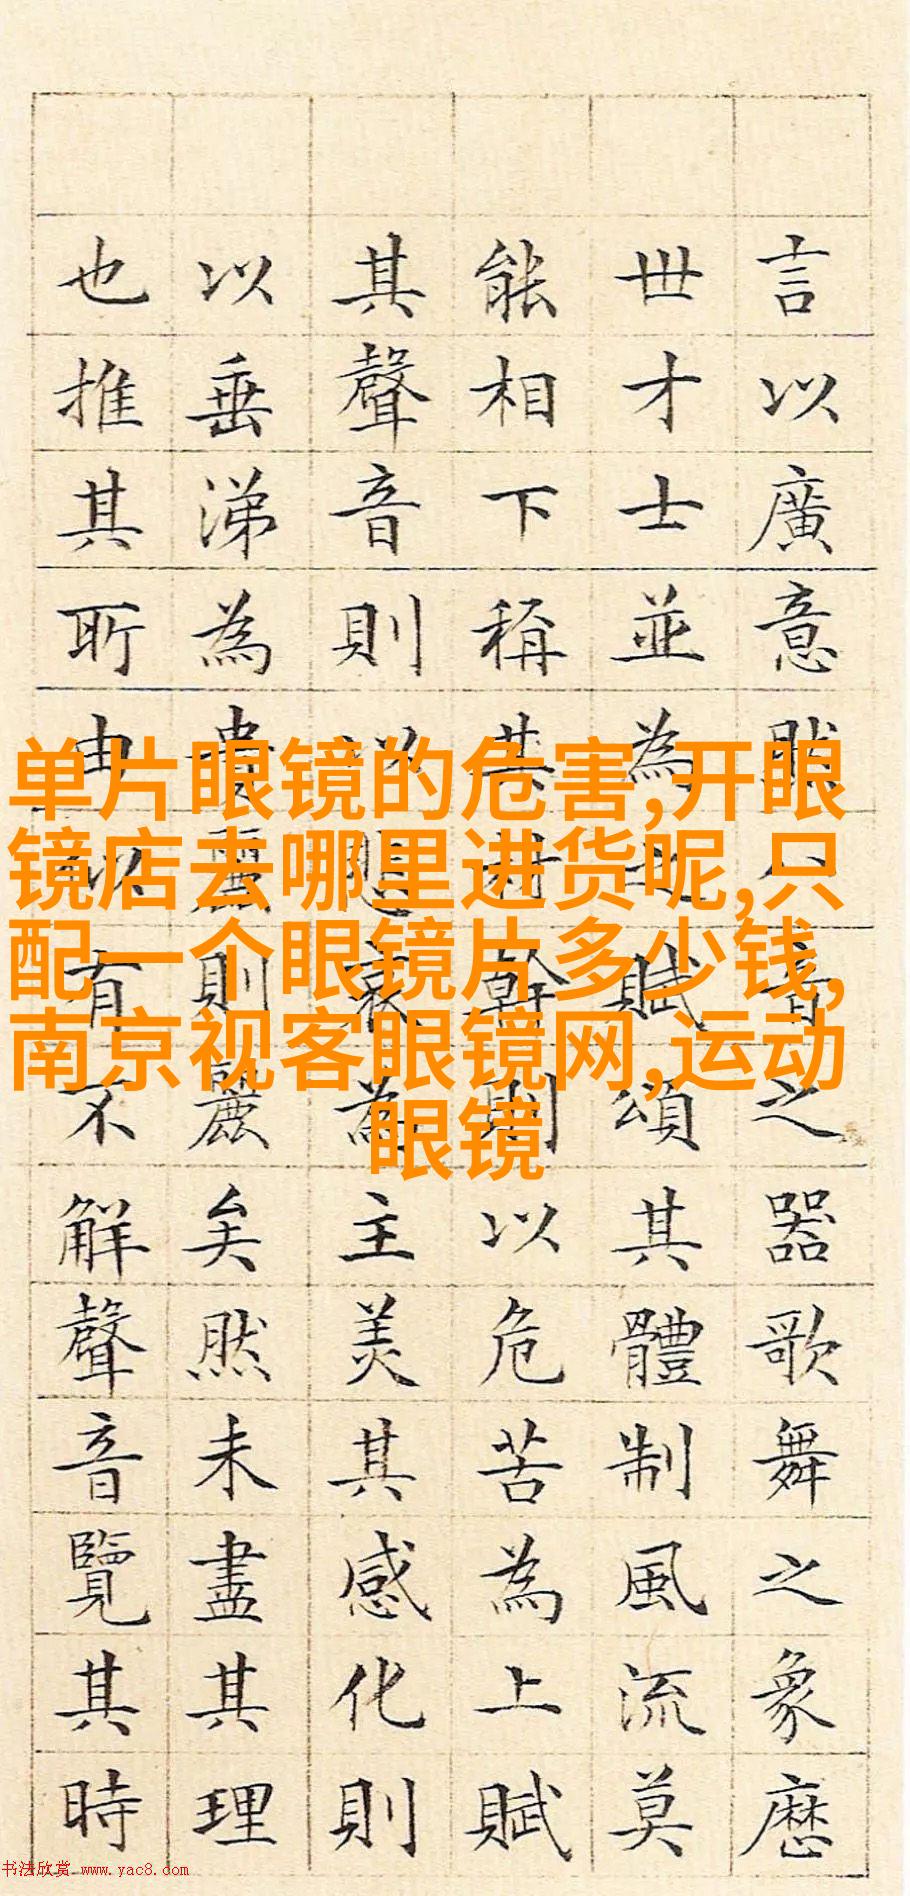 言以廣意然音之器歌舞之象歷
世才士並為賦頌其體制風流莫
能相下稱其幹則以危苦為上賦
其聲音則以哀為主美其感化則
以垂涕為貴麗則麗矣然未盡其理
也推其所由似有不解聲音覽其時
单片眼镜的危害,开眼
镜店去哪里进货呢,只
配一个眼镜片多少钱,
南京视客眼镜网,运动
眼镜
书法欣赏 www.yac8.com